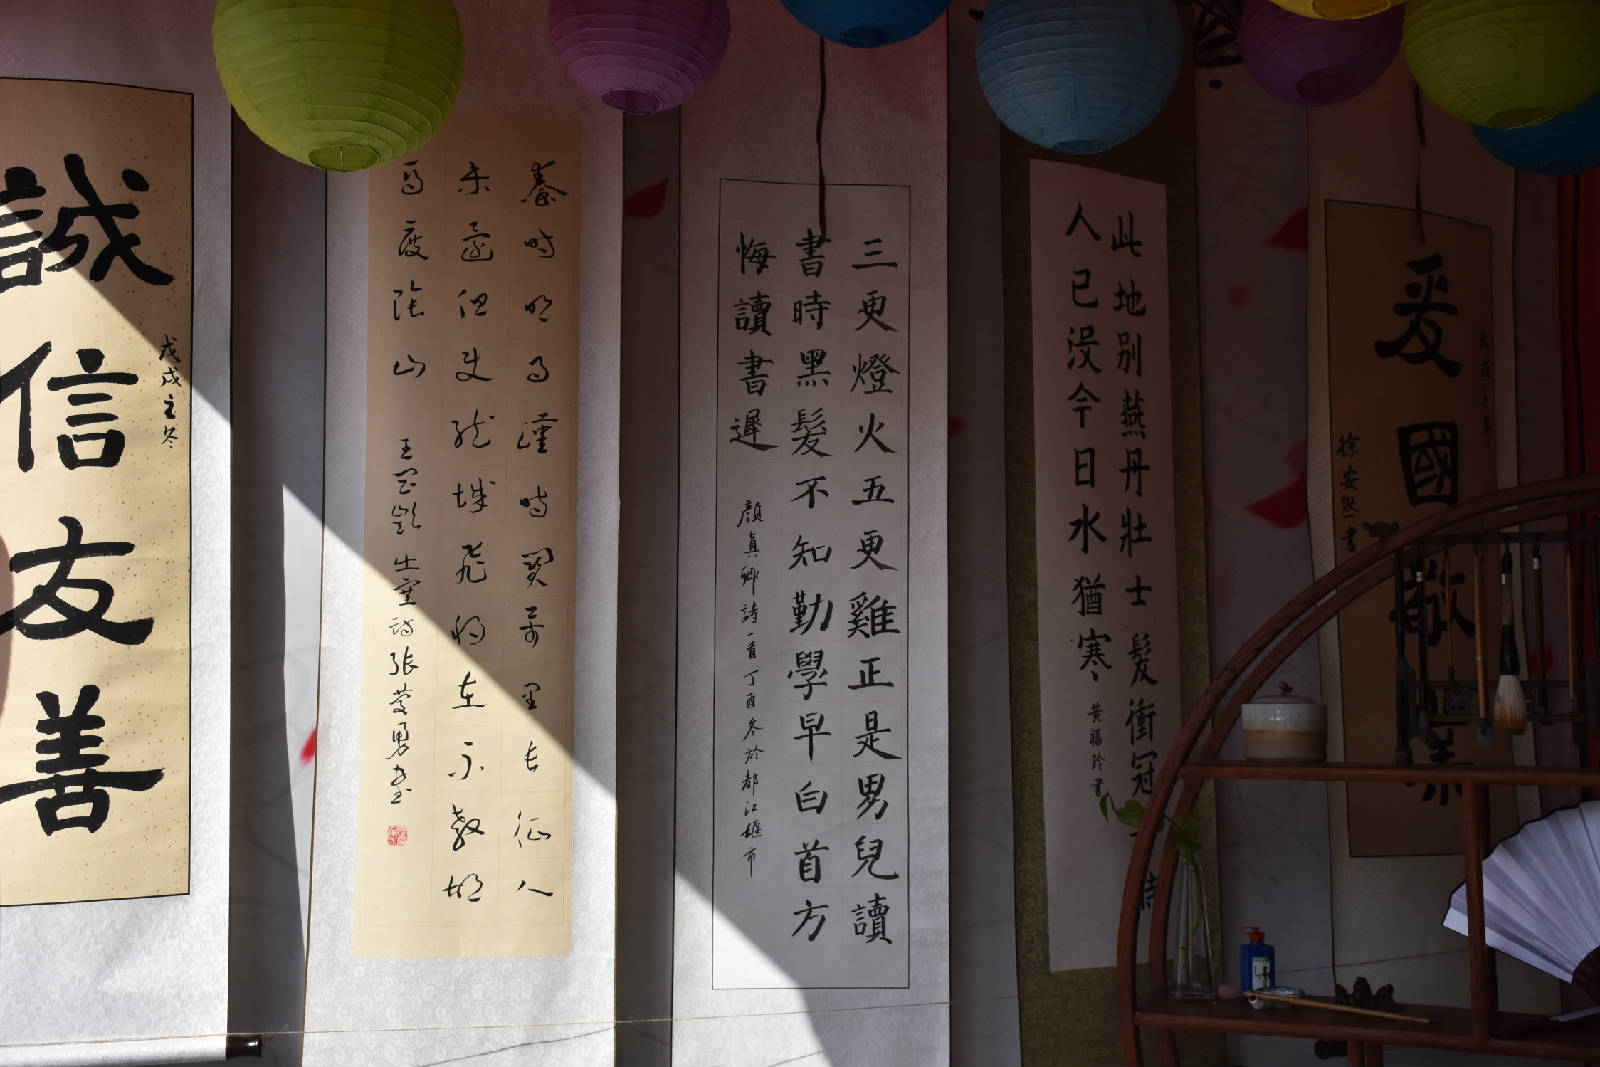 戊戌之冬
誠信友善
秦時明月漢時關萬里長征人
未還但使龍城飛將在不教胡
馬度陰山 王昌齡出塞詩張慶勇書
三更燈火五更雞正是男兒讀
書時黑髮不知勤學早白首方
悔讀書遲 顏真卿詩一首丁酉冬於都江堰市
此地别燕丹壮士髮衝冠
人已没今日水猶寒 黄福玲書
戊戌之冬
爱國敬業
徐安然書